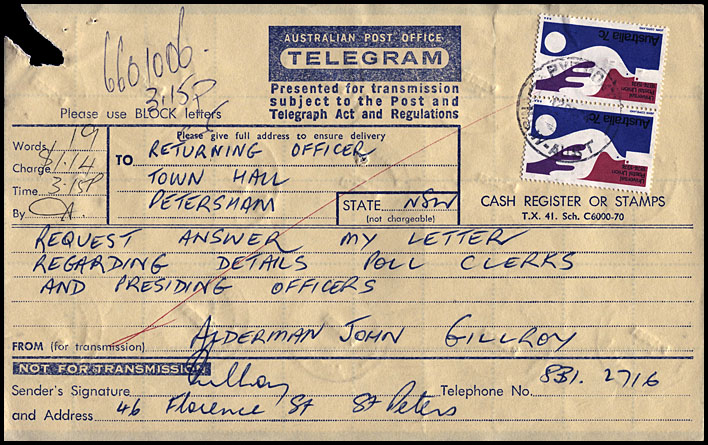 6601006.
3.15P
AUSTRALIAN POST OFFICE
TELEGRAM
Presented for transmission
subject to the Post and
Telegraph Act and Regulations
Please use BLOCK letters
Australia 7c
Universal
Postal Union
Australia 7c
Universal
Postal Union
Words 19
Charge $1.14
Time 3.15P
By
Please give full address to ensure delivery
TO RETURNING OFFICER
TOWN HALL
PETERSHAM
STATE NSW
(not chargeable)
CASH REGISTER OR STAMPS
T.X. 41. Sch. C6000-70
REQUEST ANSWER MY LETTER
REGARDING DETAILS POLL CLERKS
AND PRESIDING OFFICERS
FROM (for transmission) ALDERMAN JOHN GILLROY
NOT FOR TRANSMISSION
Sender's Signature Gillroy Telephone No. 851. 2716
and Address 46 Florence St St Peters